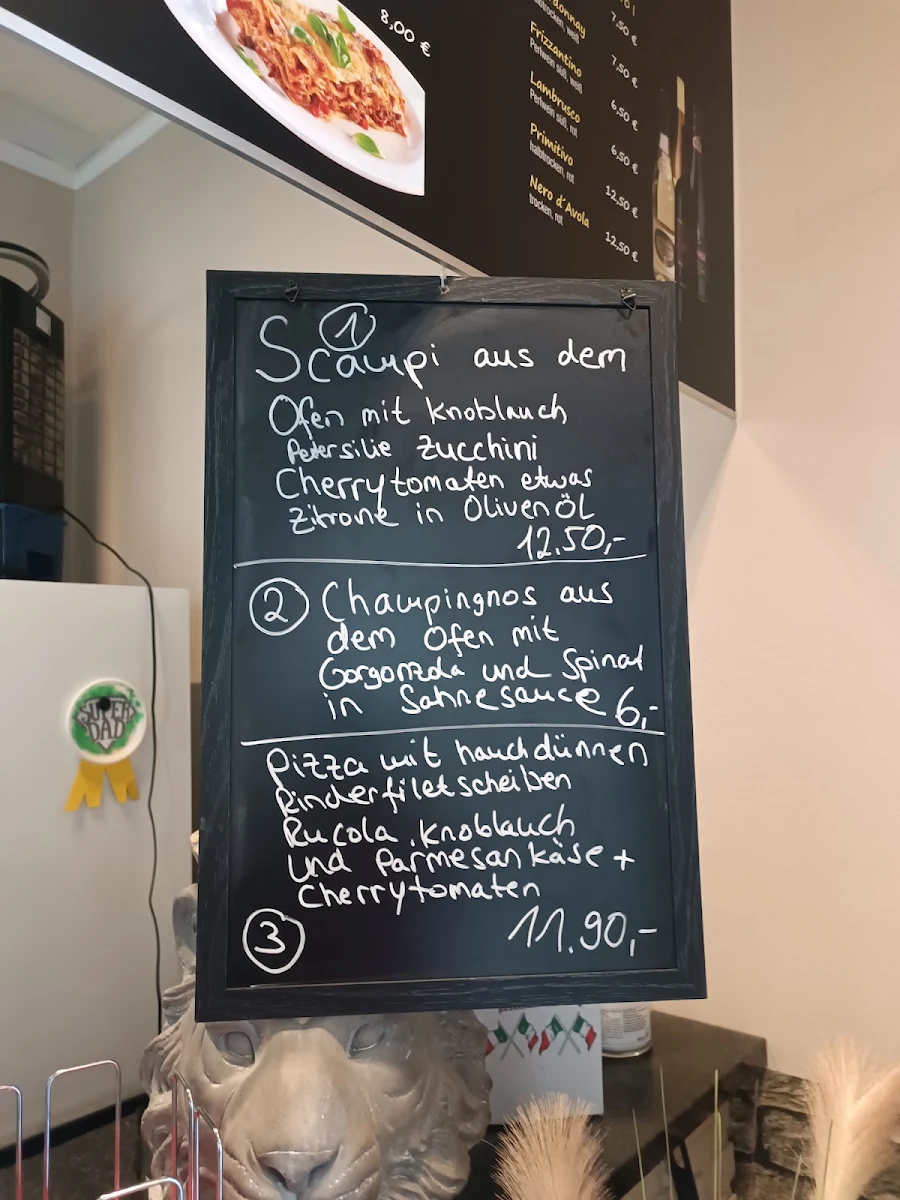 8,00 €
7,50 €
halbtrocken, weiß
Frizzantino
7,50 €
Perlwein süß, weiß
Lambrusco
6,50 €
Perlwein süß, rot
Primitivo
6,50 €
halbtrocken, rot
12,50 €
Nero d'Avola
trocken, rot
12,50 €
1
Scampi aus dem
Ofen mit Knoblauch
Petersilie Zucchini
Cherrytomaten etwas
Zitrone in Olivenöl
12.50,-
2 Champingnos aus
dem Ofen mit
Gorgonzola und Spinat
in Sahnesauce 6,-
Pizza mit hauchdünnen
Rinderfiletscheiben
Rucola, Knoblauch
und Parmesankäse +
Cherrytomaten
3 11.90,-
SUPER
DAD